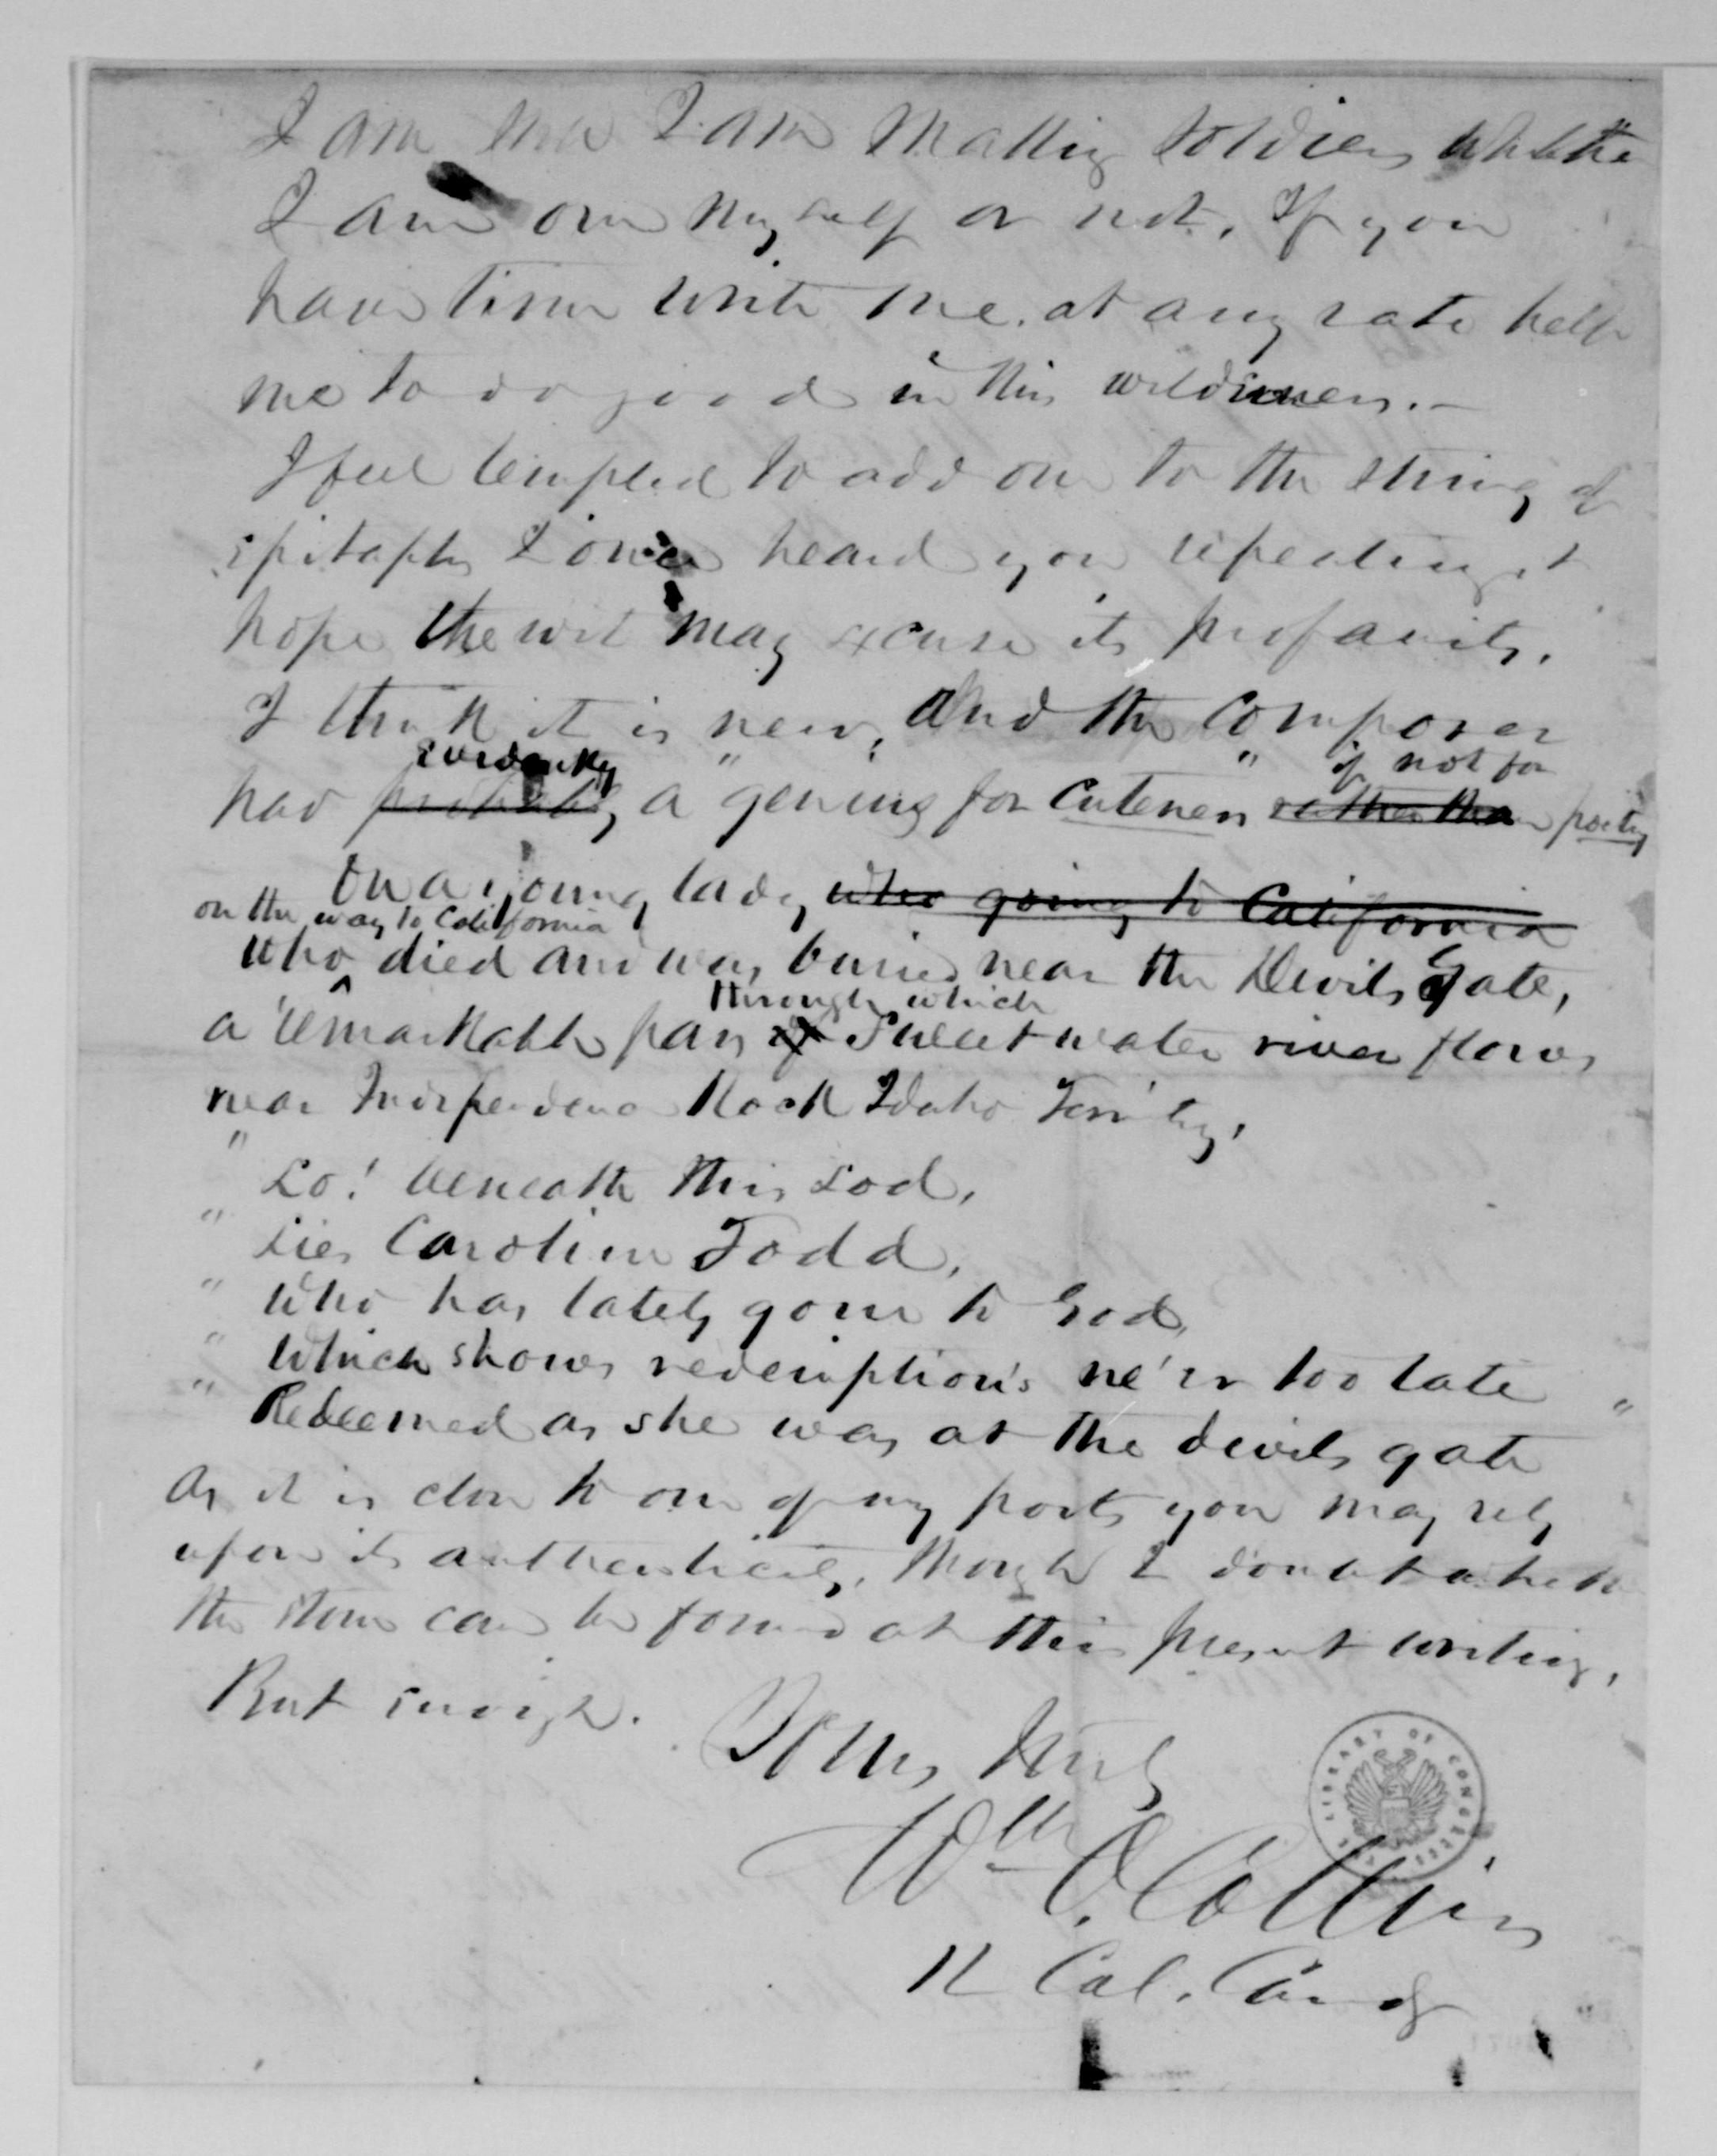 I am sure I am making soldiers whether
I am one myself or not. If you
have time write me. at any rate help
me to do good in this wilderness.—
I feel tempted to add one to the string of
epitaphs I once heard you repeating &
hope the wit may excuse its profanity.
I think it is new, and the composer
evidently " " if not for
had probably a "genius for cuteness rather than poetry
On a young lady who going to California
on the way to California
who died and was buried near the Devils Gate,
through which
a remarkable pass of Sweetwater river flows
near Independence Rock Idaho Ter'ity.
" Lo! beneath this sod,
" Lies Caroline Todd,
" Who has lately gone to God,
" Which shows redemption's ne'er too late
" Redeemed as she was at the devils gate "
As it is close to one of my posts you may rely
upon its authenticity, though I doubt whether
the stone can be found at this present writing.
But enough.
Yours truly
Wm O. Collins
11 Cal. Cavy
LIBRARY OF CONGRESS